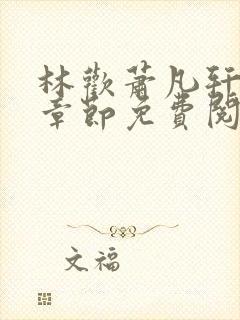 林歡蕭凡轩
章節免費閱
文福